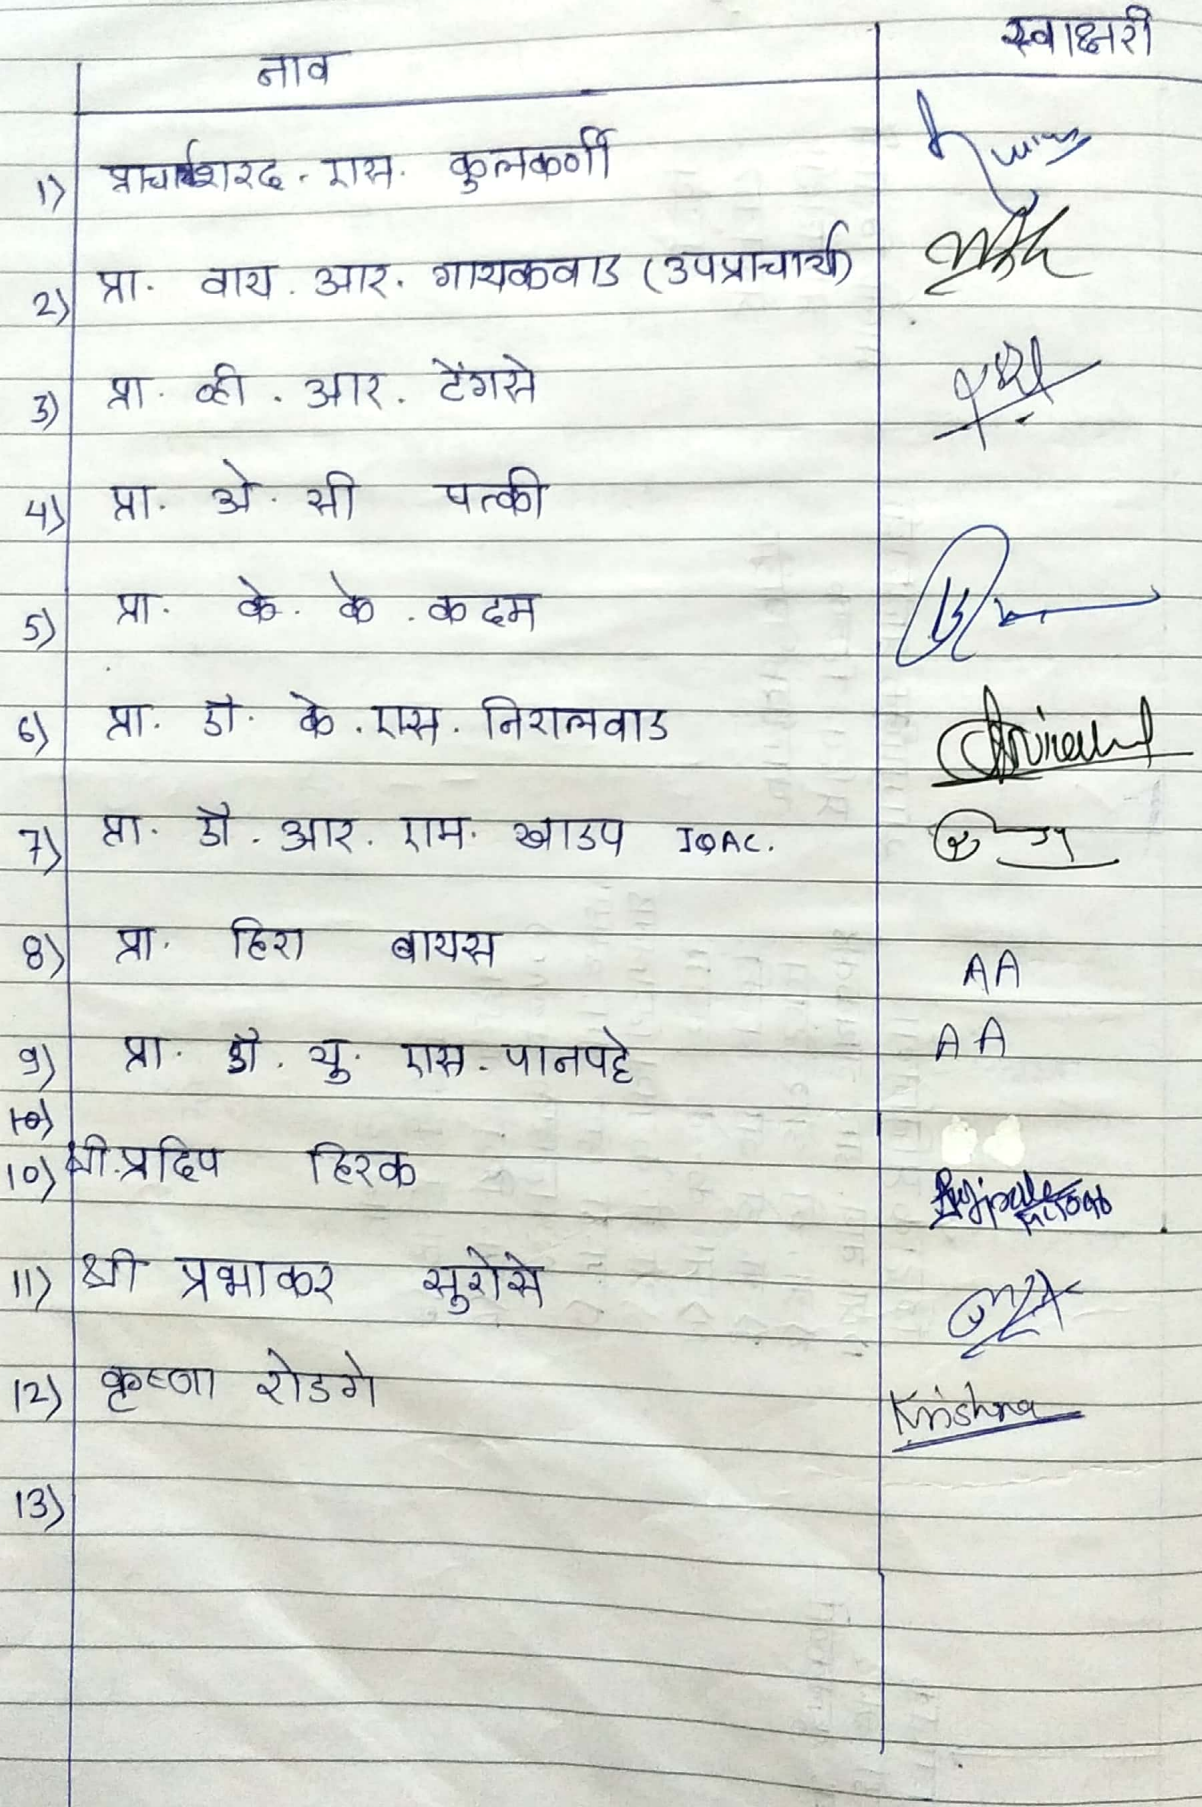 नाव स्वाक्षरी
1) प्राचार्य शरद. एस. कुलकर्णी
2) प्रा. वाय. आर. गायकवाड (उपप्राचार्य)
3) प्रा. व्ही. आर. टेंगसे
4) प्रा. अे. सी पत्की
5) प्रा. के. के. कदम
6) प्रा. डॉ. के. एस. निरालवाड
7) प्रा. डॉ. आर. एम. खाडप IQAC.
8) प्रा. हिरा बायस AA
9) प्रा. डॉ. यु. एस. पानपट्टे AA
10)
10) श्री. प्रदिप हिरक
11) श्री प्रभाकर सुरोसे
12) कृष्णा रोडगे Krishna
13)